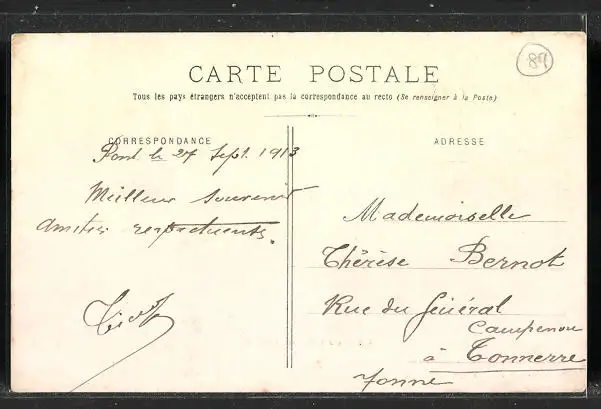 89
CARTE POSTALE
Tous les pays étrangers n'acceptent pas la correspondance au recto (Se renseigner à la Poste)
CORRESPONDANCE
Pont le 27 Sept. 1913
Meilleur Souvenir
amitiés respectueuses.
ADRESSE
Mademoiselle
Thérèse Bernot
Rue du Général
Campenon
à Tonnerre
Yonne